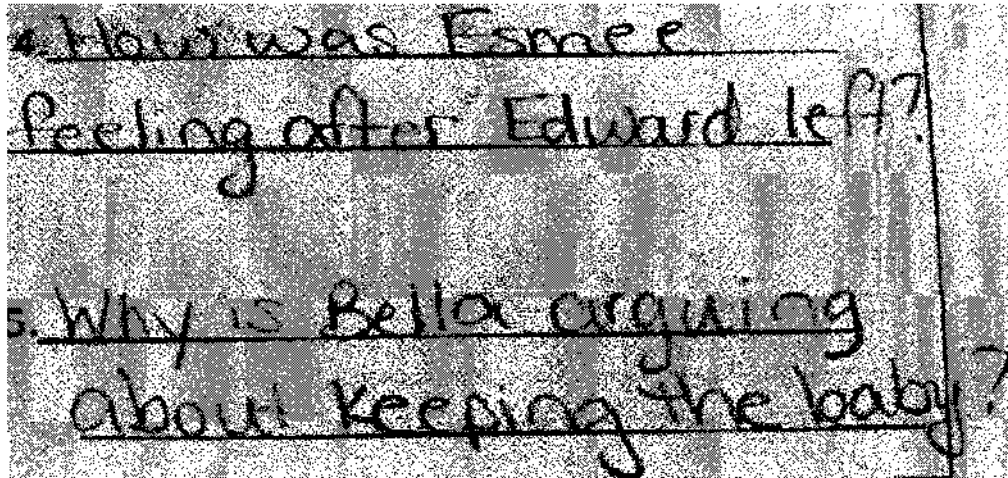 4. How was Esmee
feeling after Edward left?
5. Why is Bella arguing
about keeping the baby?